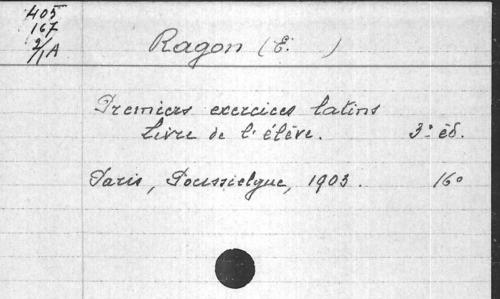 405
167
2/1A
Ragon (E. )
Premiers exercices latins
Livre de l'élève. 3° éd.
Paris, Poussielgue, 1903. 16°